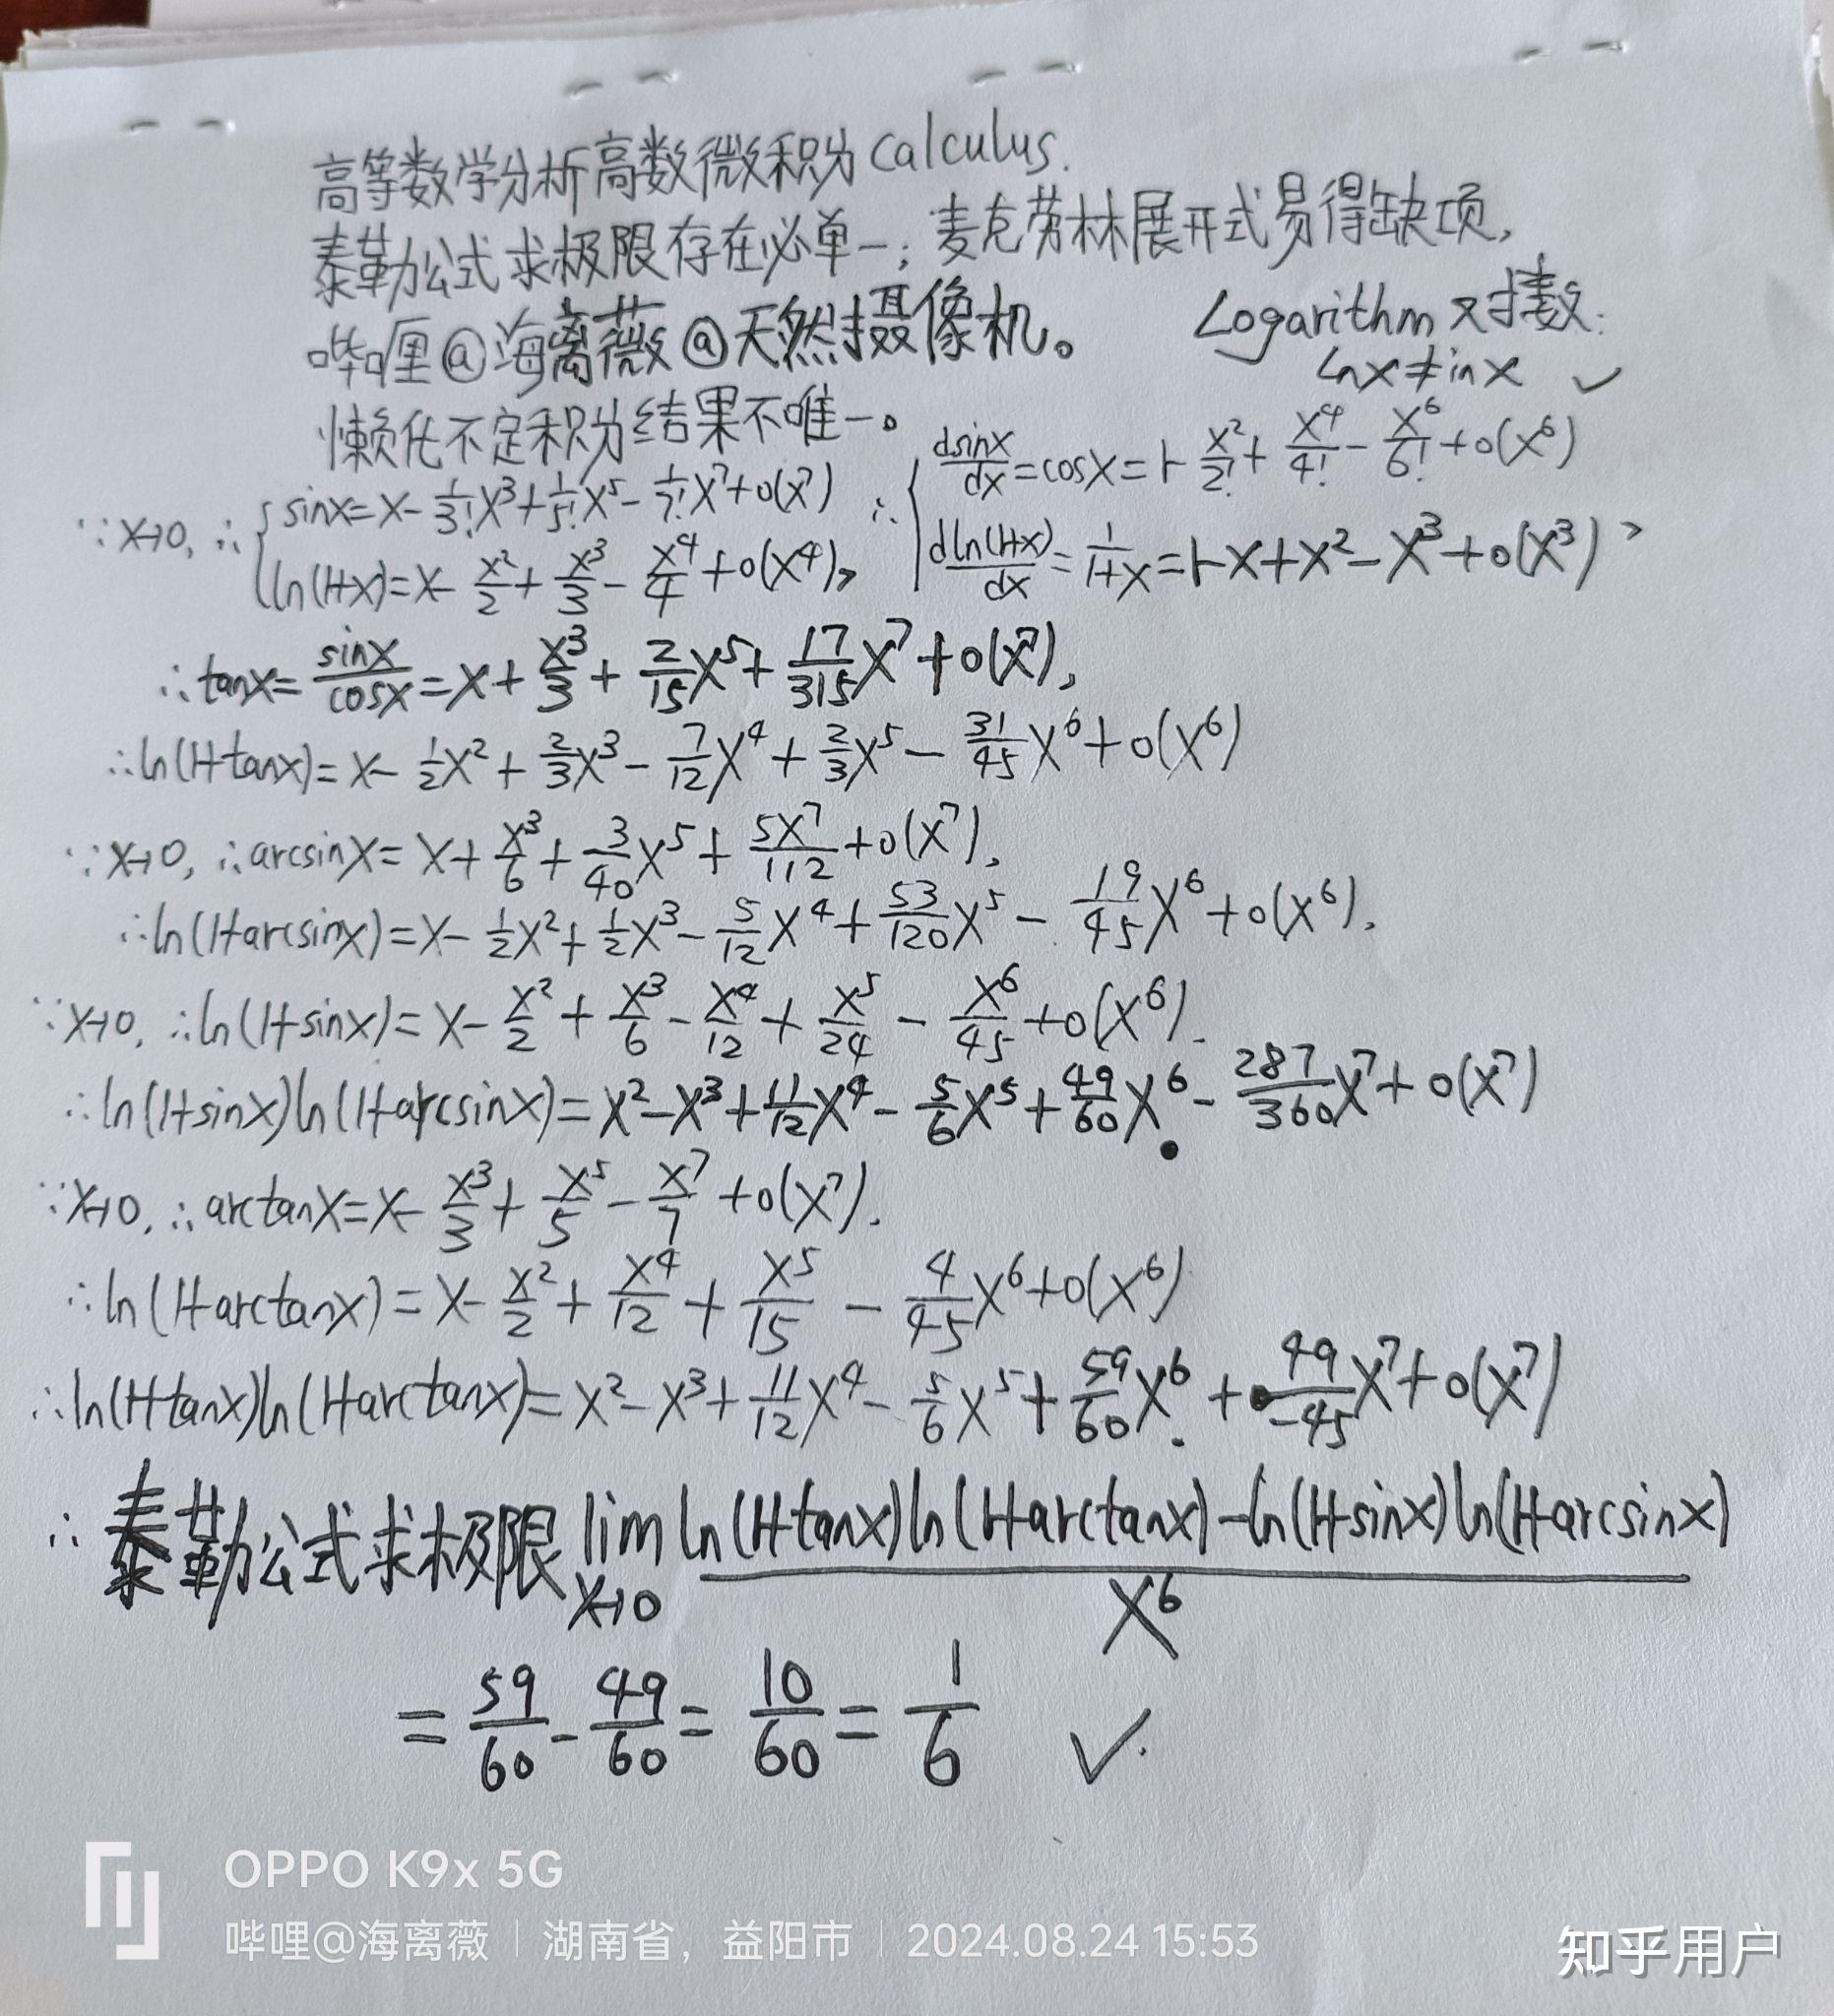 高等数学分析高数微积分Calculus.
泰勒公式求极限存在必单一;麦克劳林展开式易得缺项,
哔哩@海离薇@天然摄像机。 Logarithm对数:
lnx≠inx ✓
懒化不定积分结果不唯一。
∵x→0,∴{sinx=x-1/3!x³+1/5!x⁵-1/7!x⁷+o(x⁷) ∴{dsinx/dx=cosx=1-x²/2!+x⁴/4!-x⁶/6!+o(x⁶)
ln(1+x)=x-x²/2+x³/3-x⁴/4+o(x⁴), dln(1+x)/dx=1/1+x=1-x+x²-x³+o(x³),
∴tanx=sinx/cosx=x+x³/3+2/15x⁵+17/315x⁷+o(x⁷),
∴ln(1+tanx)=x-1/2x²+2/3x³-7/12x⁴+2/3x⁵-31/45x⁶+o(x⁶)
∵x→0,∴arcsinx=x+x³/6+3/40x⁵+5x⁷/112+o(x⁷),
∴ln(1+arcsinx)=x-1/2x²+1/2x³-5/12x⁴+53/120x⁵-19/45x⁶+o(x⁶).
∵x→0,∴ln(1+sinx)=x-x²/2+x³/6-x⁴/12+x⁵/24-x⁶/45+o(x⁶).
∴ln(1+sinx)ln(1+arcsinx)=x²-x³+11/12x⁴-5/6x⁵+49/60x⁶-287/360x⁷+o(x⁷)
∵x→0,∴arctanx=x-x³/3+x⁵/5-x⁷/7+o(x⁷).
∴ln(1+arctanx)=x-x²/2+x⁴/12+x⁵/15-4/45x⁶+o(x⁶)
∴ln(1+tanx)ln(1+arctanx)=x²-x³+11/12x⁴-5/6x⁵+59/60x⁶+49/-45x⁷+o(x⁷)
∴泰勒公式求极限lim x→0 ln(1+tanx)ln(1+arctanx)-ln(1+sinx)ln(1+arcsinx)/x⁶
=59/60-49/60=10/60=1/6 ✓.
OPPO K9x 5G
哔哩@海离薇 | 湖南省, 益阳市 | 2024.08.24 15:53
知乎用户